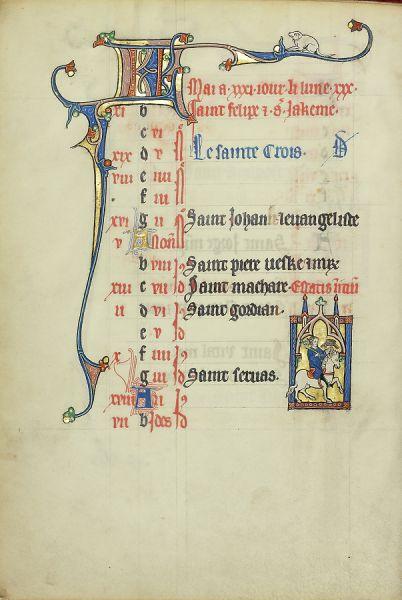 KL Mai a · xxxi · iour · li lune · xxx ·
xi b Saint felipe z · s̄ · Jakeme ·
c vi
xix d v Le sainte Crois · D
viii e iiii
f iii
xvi g ii Saint Johan leuangeliste
v A Non
b viii Saint piere ueske mr̄
xiii c vii Saint machaire · Estatis
ii d vi Saint gordian ·
e v
x f iiii
g iii Saint seruas ·
xviii A ii
vii b Idus